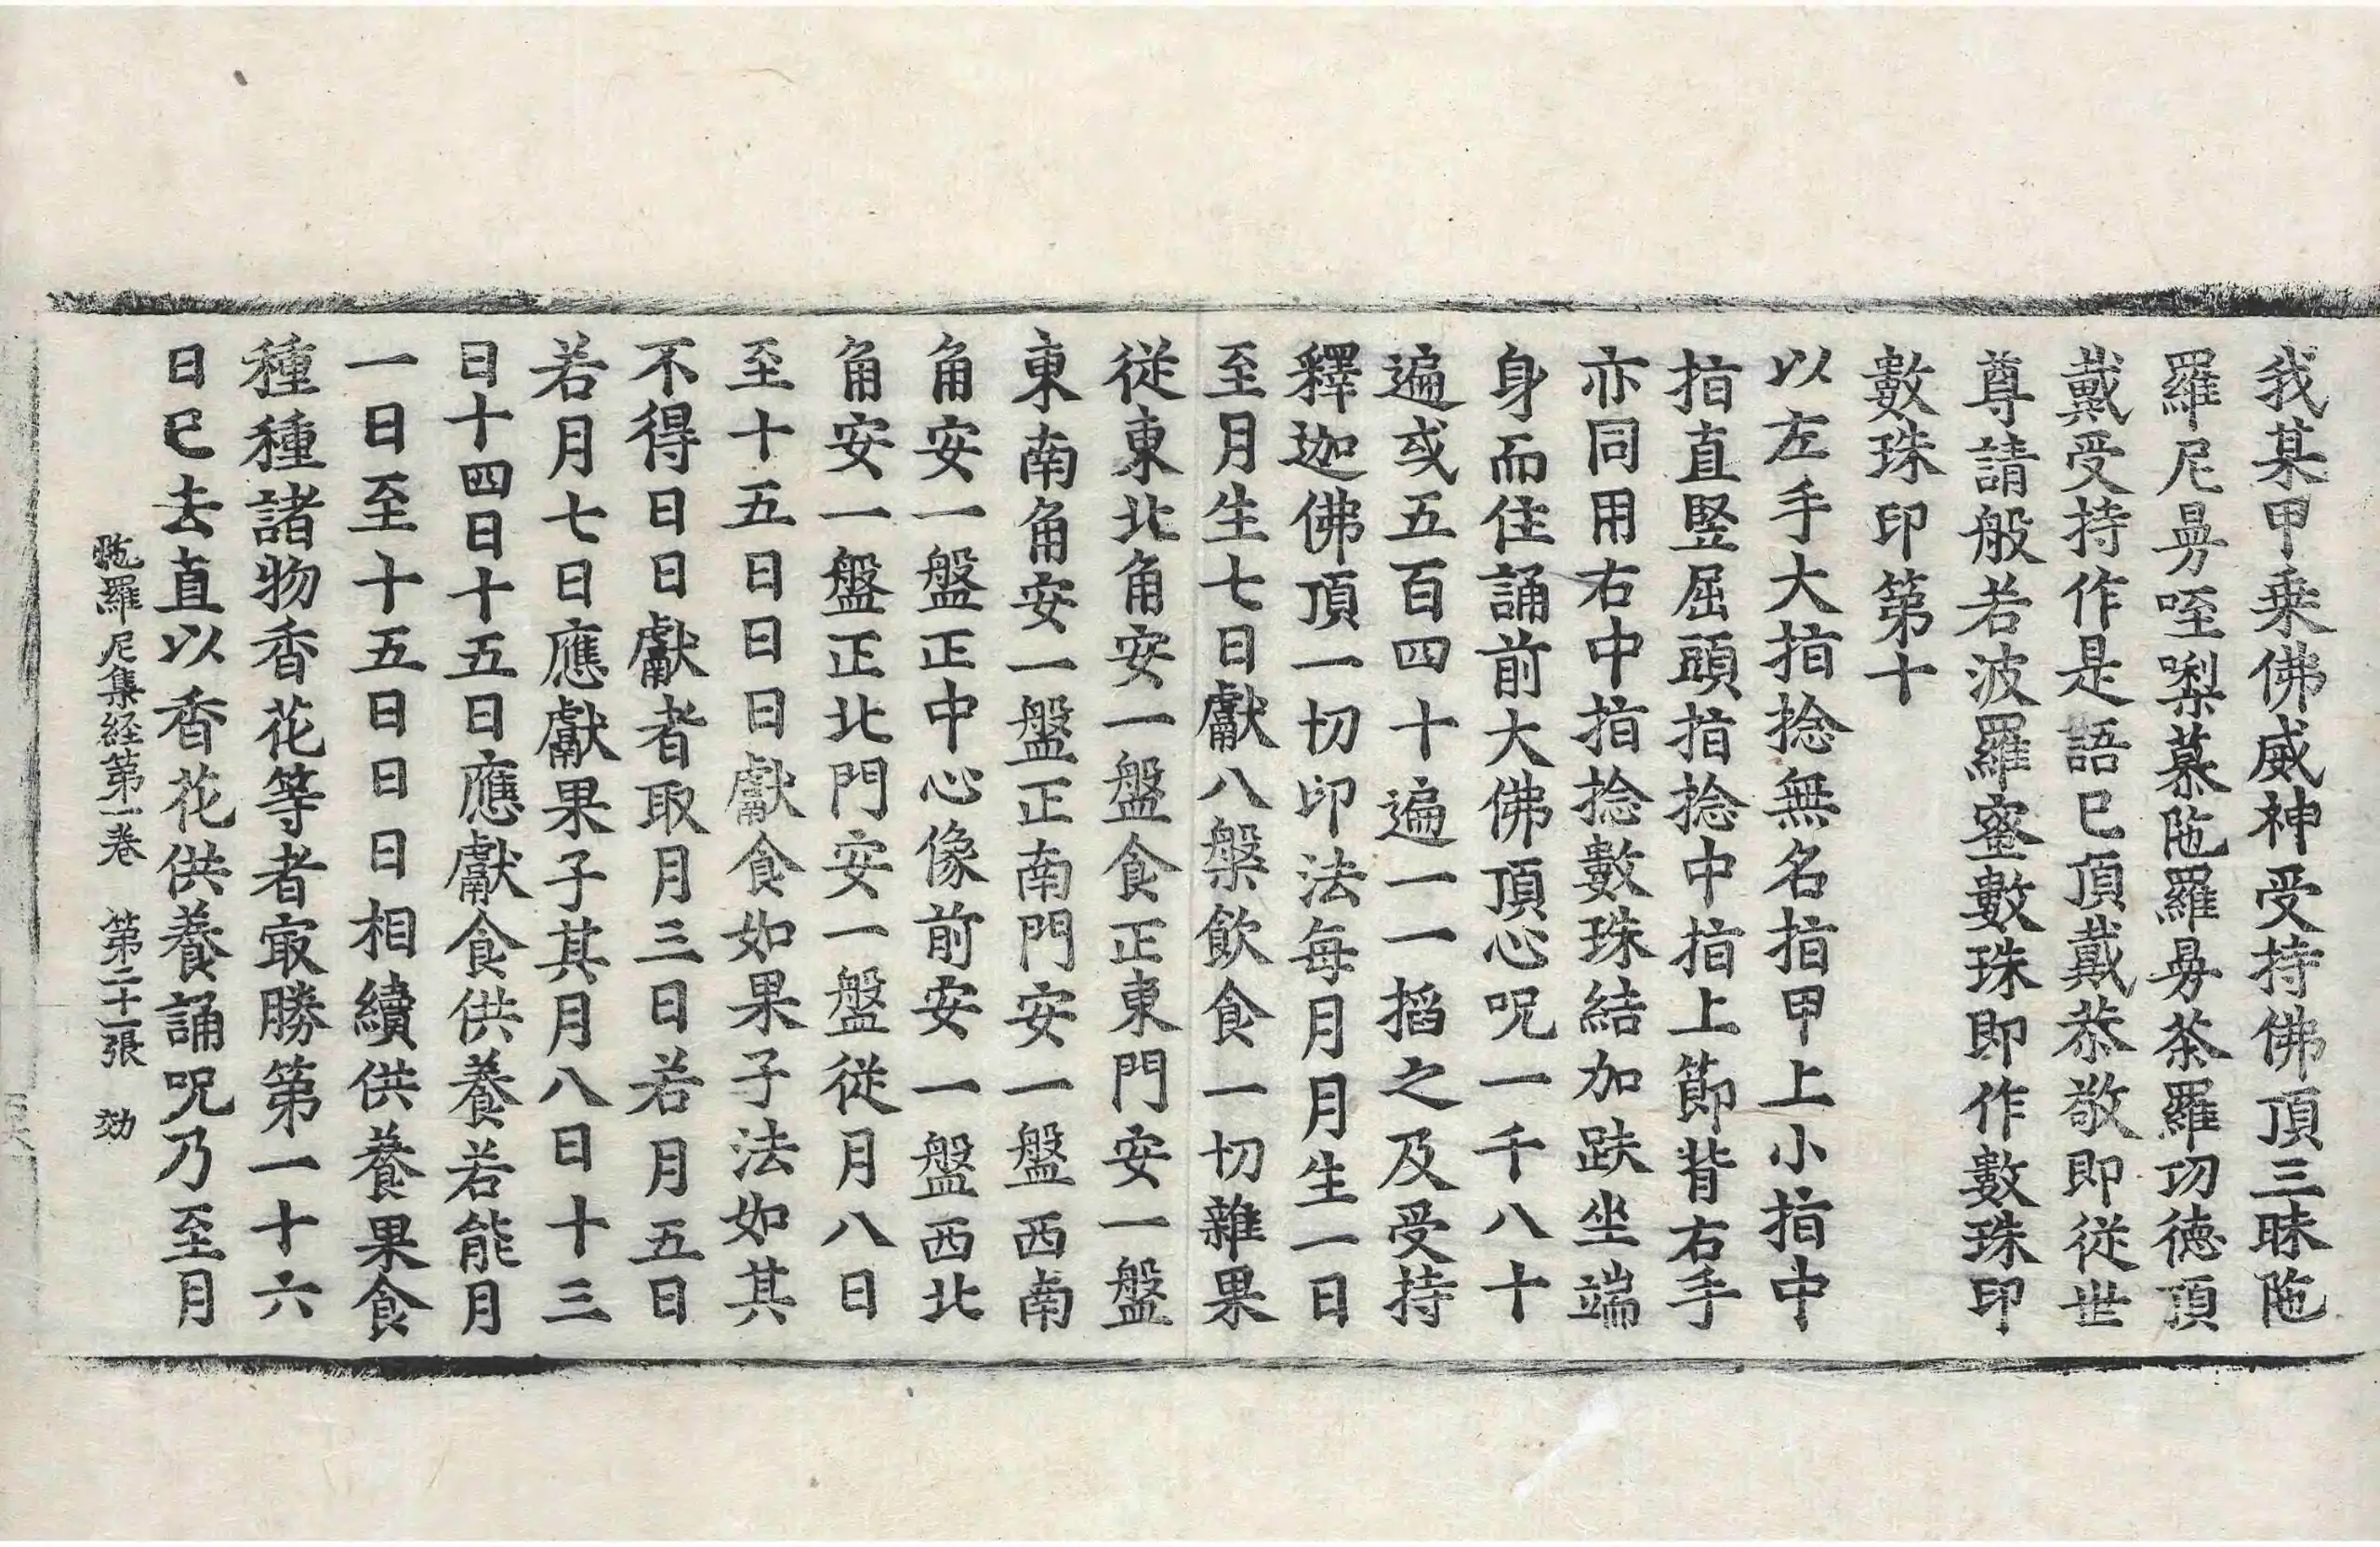 我某甲乗佛威神受持佛頂三昧陁
羅尼㬰咥𠼝慕陁羅㬰荼羅功德頂
戴受持作是語已頂戴恭敬即從世
尊請般若波羅蜜數珠即作數珠印
數珠印第十
以左手大指捻無名指甲上小指中
指直竪屈頭指捻中指上節背右手
亦同用右中指捻數珠結加趺坐端
身而住誦前大佛頂心呪一千八十
遍或五百四十遍一一搯之及受持
釋迦佛頂一切印法每月月生一日
至月生七日獻八槃飲食一切雜果
從東北角安一盤食正東門安一盤
東南角安一盤正南門安一盤西南
角安一盤正中心像前安一盤西北
角安一盤正北門安一盤從月八日
至十五日日日獻食如果子法如其
不得日日獻者取月三日若月五日
若月七日應獻果子其月八日十三
日十四日十五日應獻食供養若能月
一日至十五日日日相續供養果食
種種諸物香花等者㝡勝第一十六
日已去直以香花供養誦呪乃至月
陁羅尼集経第一卷 第二十一張 効